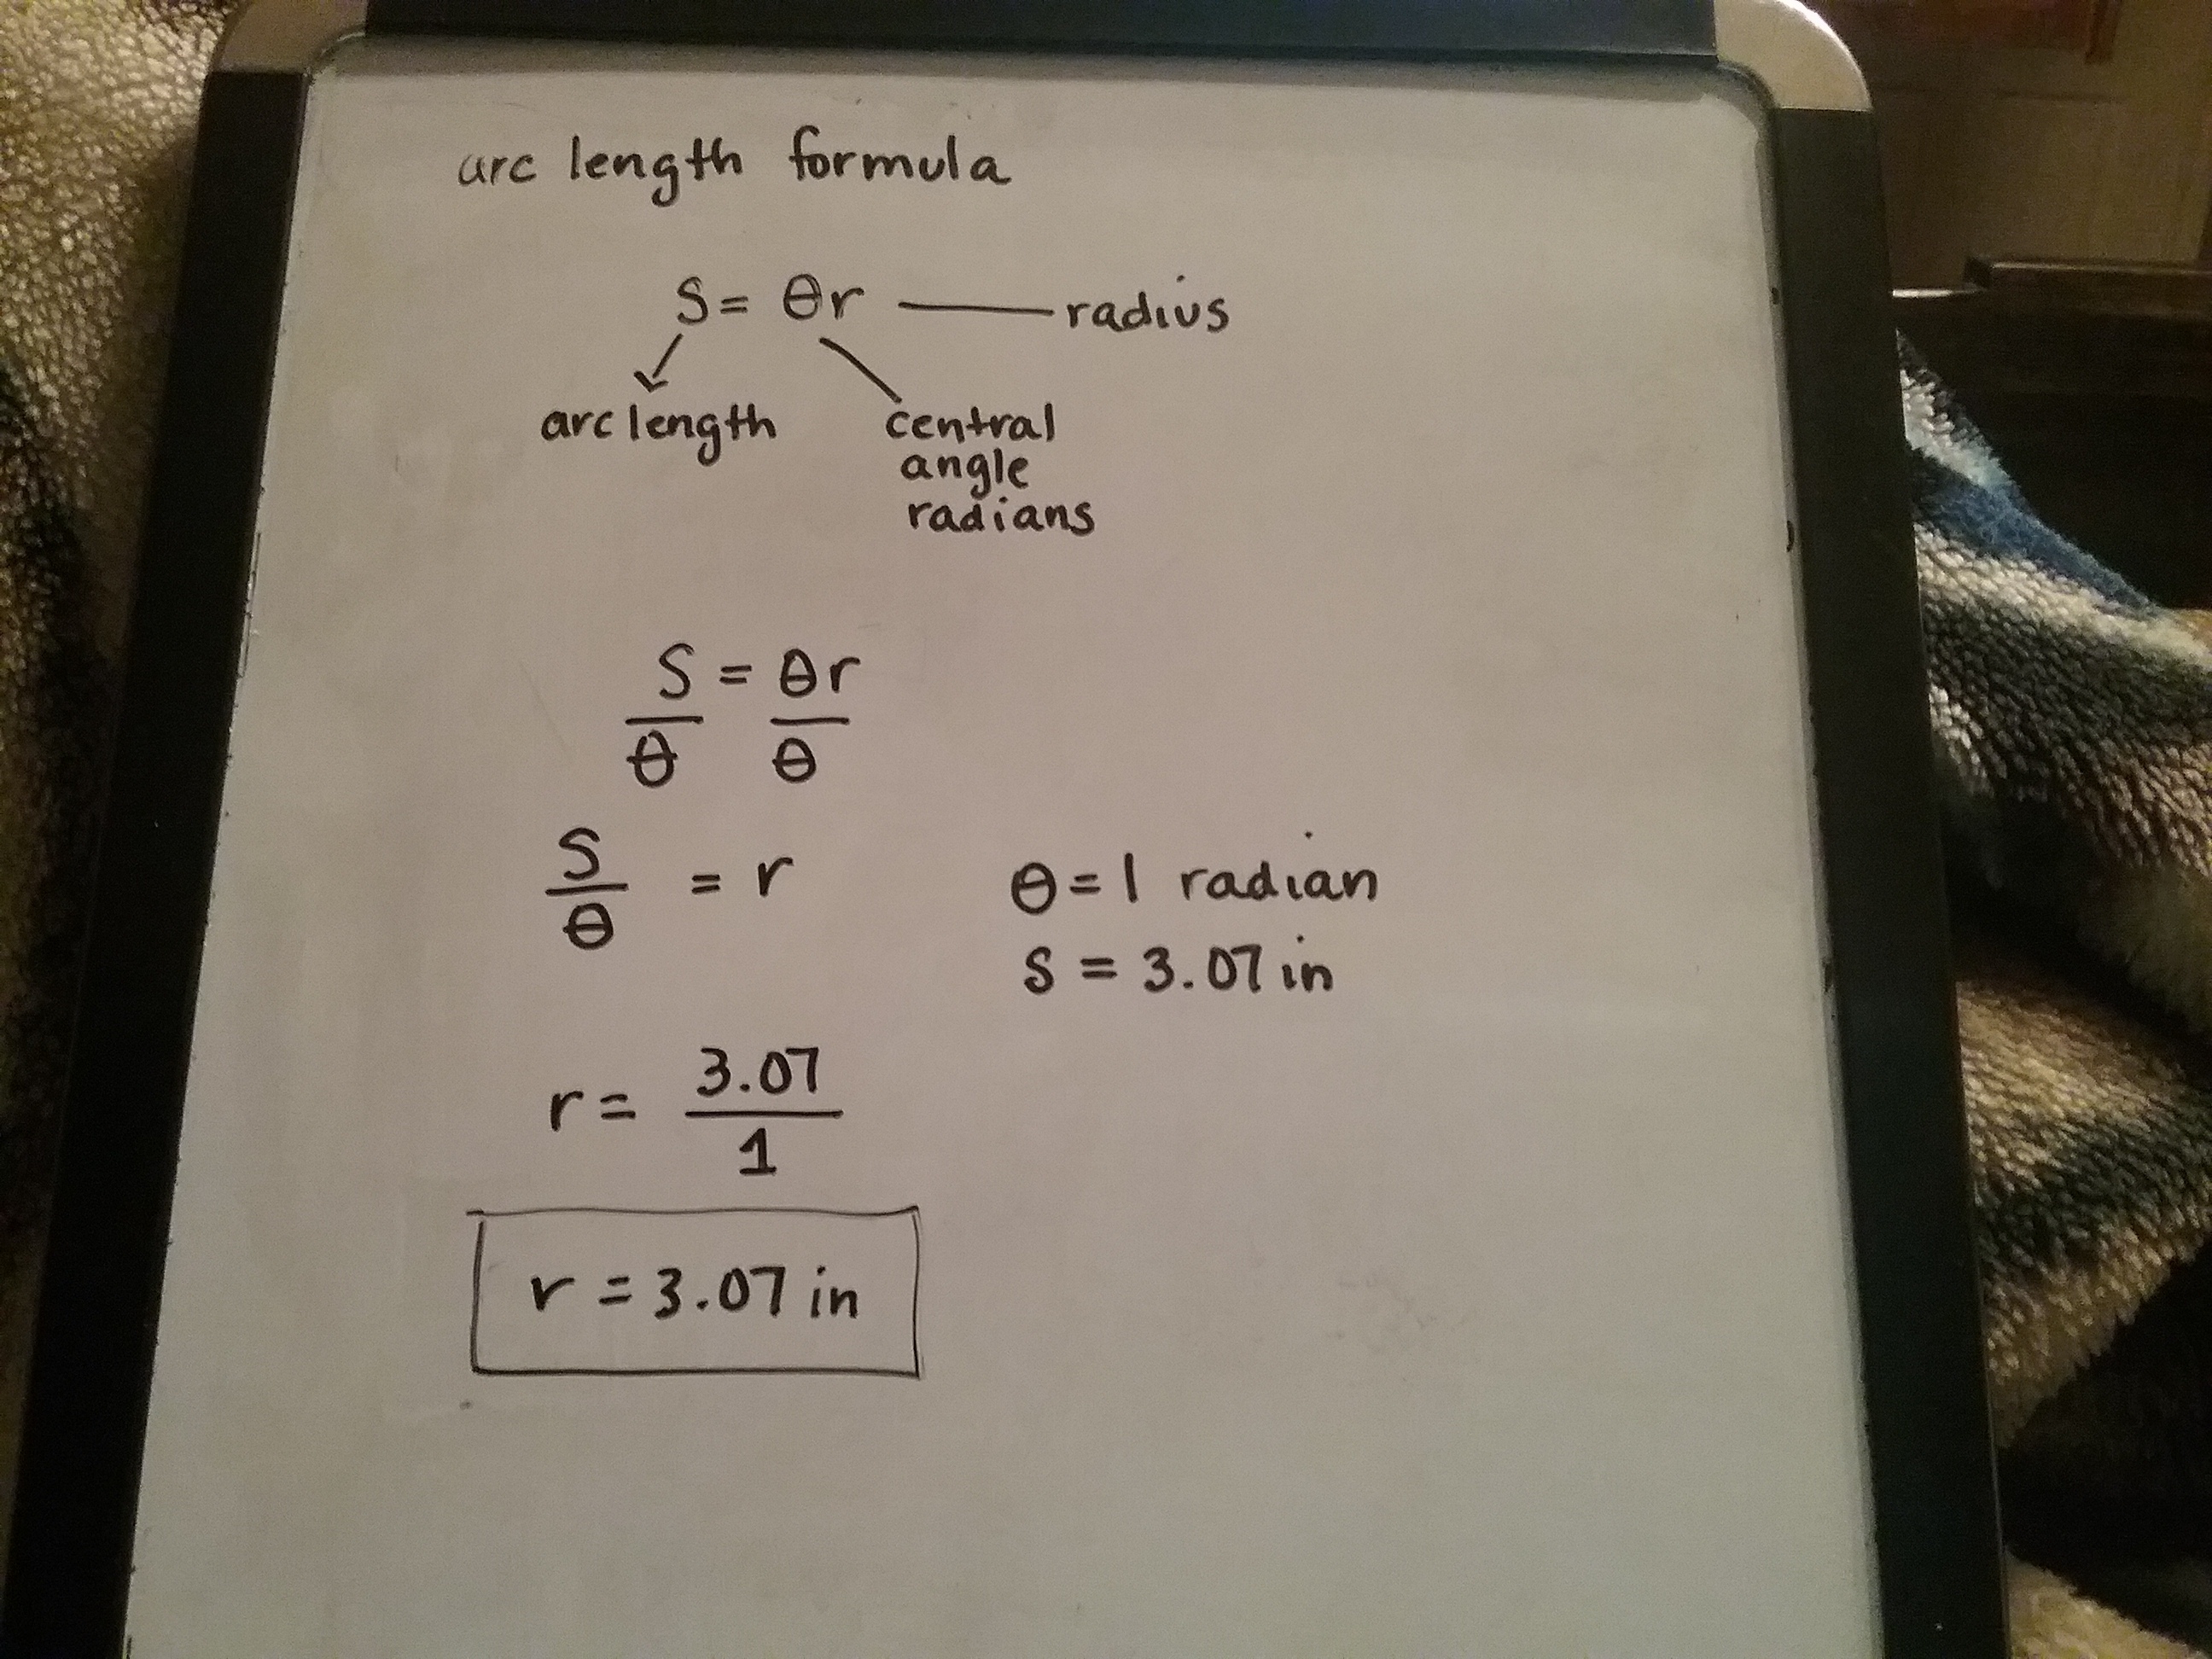 arc length formula
S = θr — radius
arc length
central
angle
radians
S = θr
θ θ
S
θ
= r
θ = 1 radian
S = 3.07 in
r = 3.07
1
r = 3.07 in